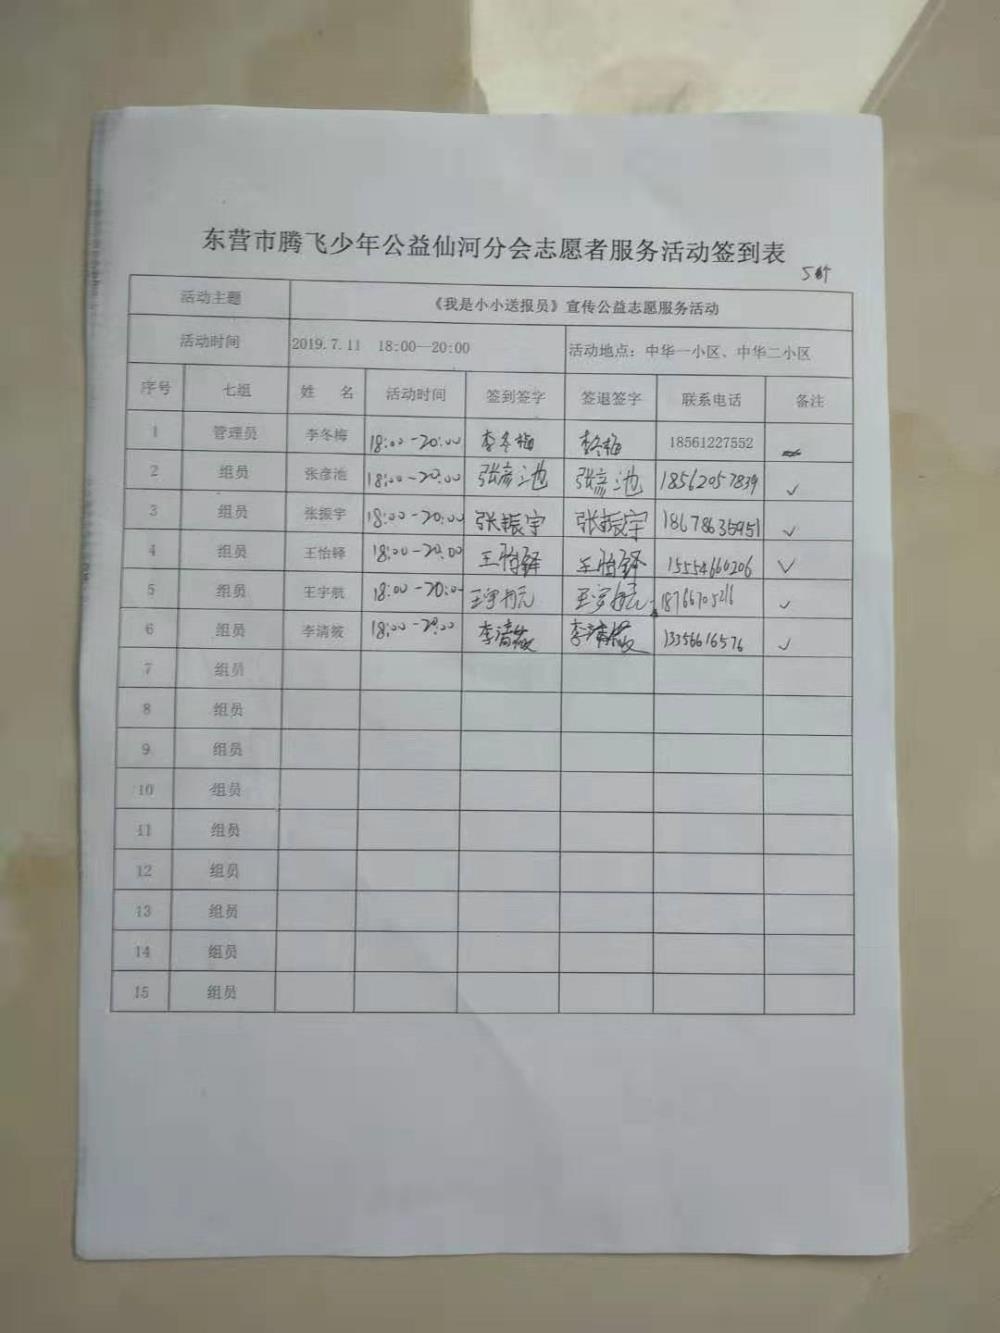 东营市腾飞少年公益仙河分会志愿者服务活动签到表
活动主题 《我是小小送报员》宣传公益志愿服务活动
活动时间 2019.7.11 18:00—20:00 活动地点：中华一小区、中华二小区
序号 七组 姓 名 活动时间 签到签字 签退签字 联系电话 备注
1 管理员 李冬梅 18:00-20:00 李冬梅 李冬梅 18561227552
2 组员 张彦池 18:00-20:00 张彦池 张彦池 18562057839 ✓
3 组员 张振宇 18:00-20:00 张振宇 张振宇 18678635951 ✓
4 组员 王怡铎 18:00-20:00 王怡铎 王怡铎 15554660206 ✓
5 组员 王宇航 18:00-20:00 王宇航 王宇航 18766705216 ✓
6 组员 李清筱 18:00-20:00 李清筱 李清筱 13356616576 ✓
7 组员
8 组员
9 组员
10 组员
11 组员
12 组员
13 组员
14 组员
15 组员